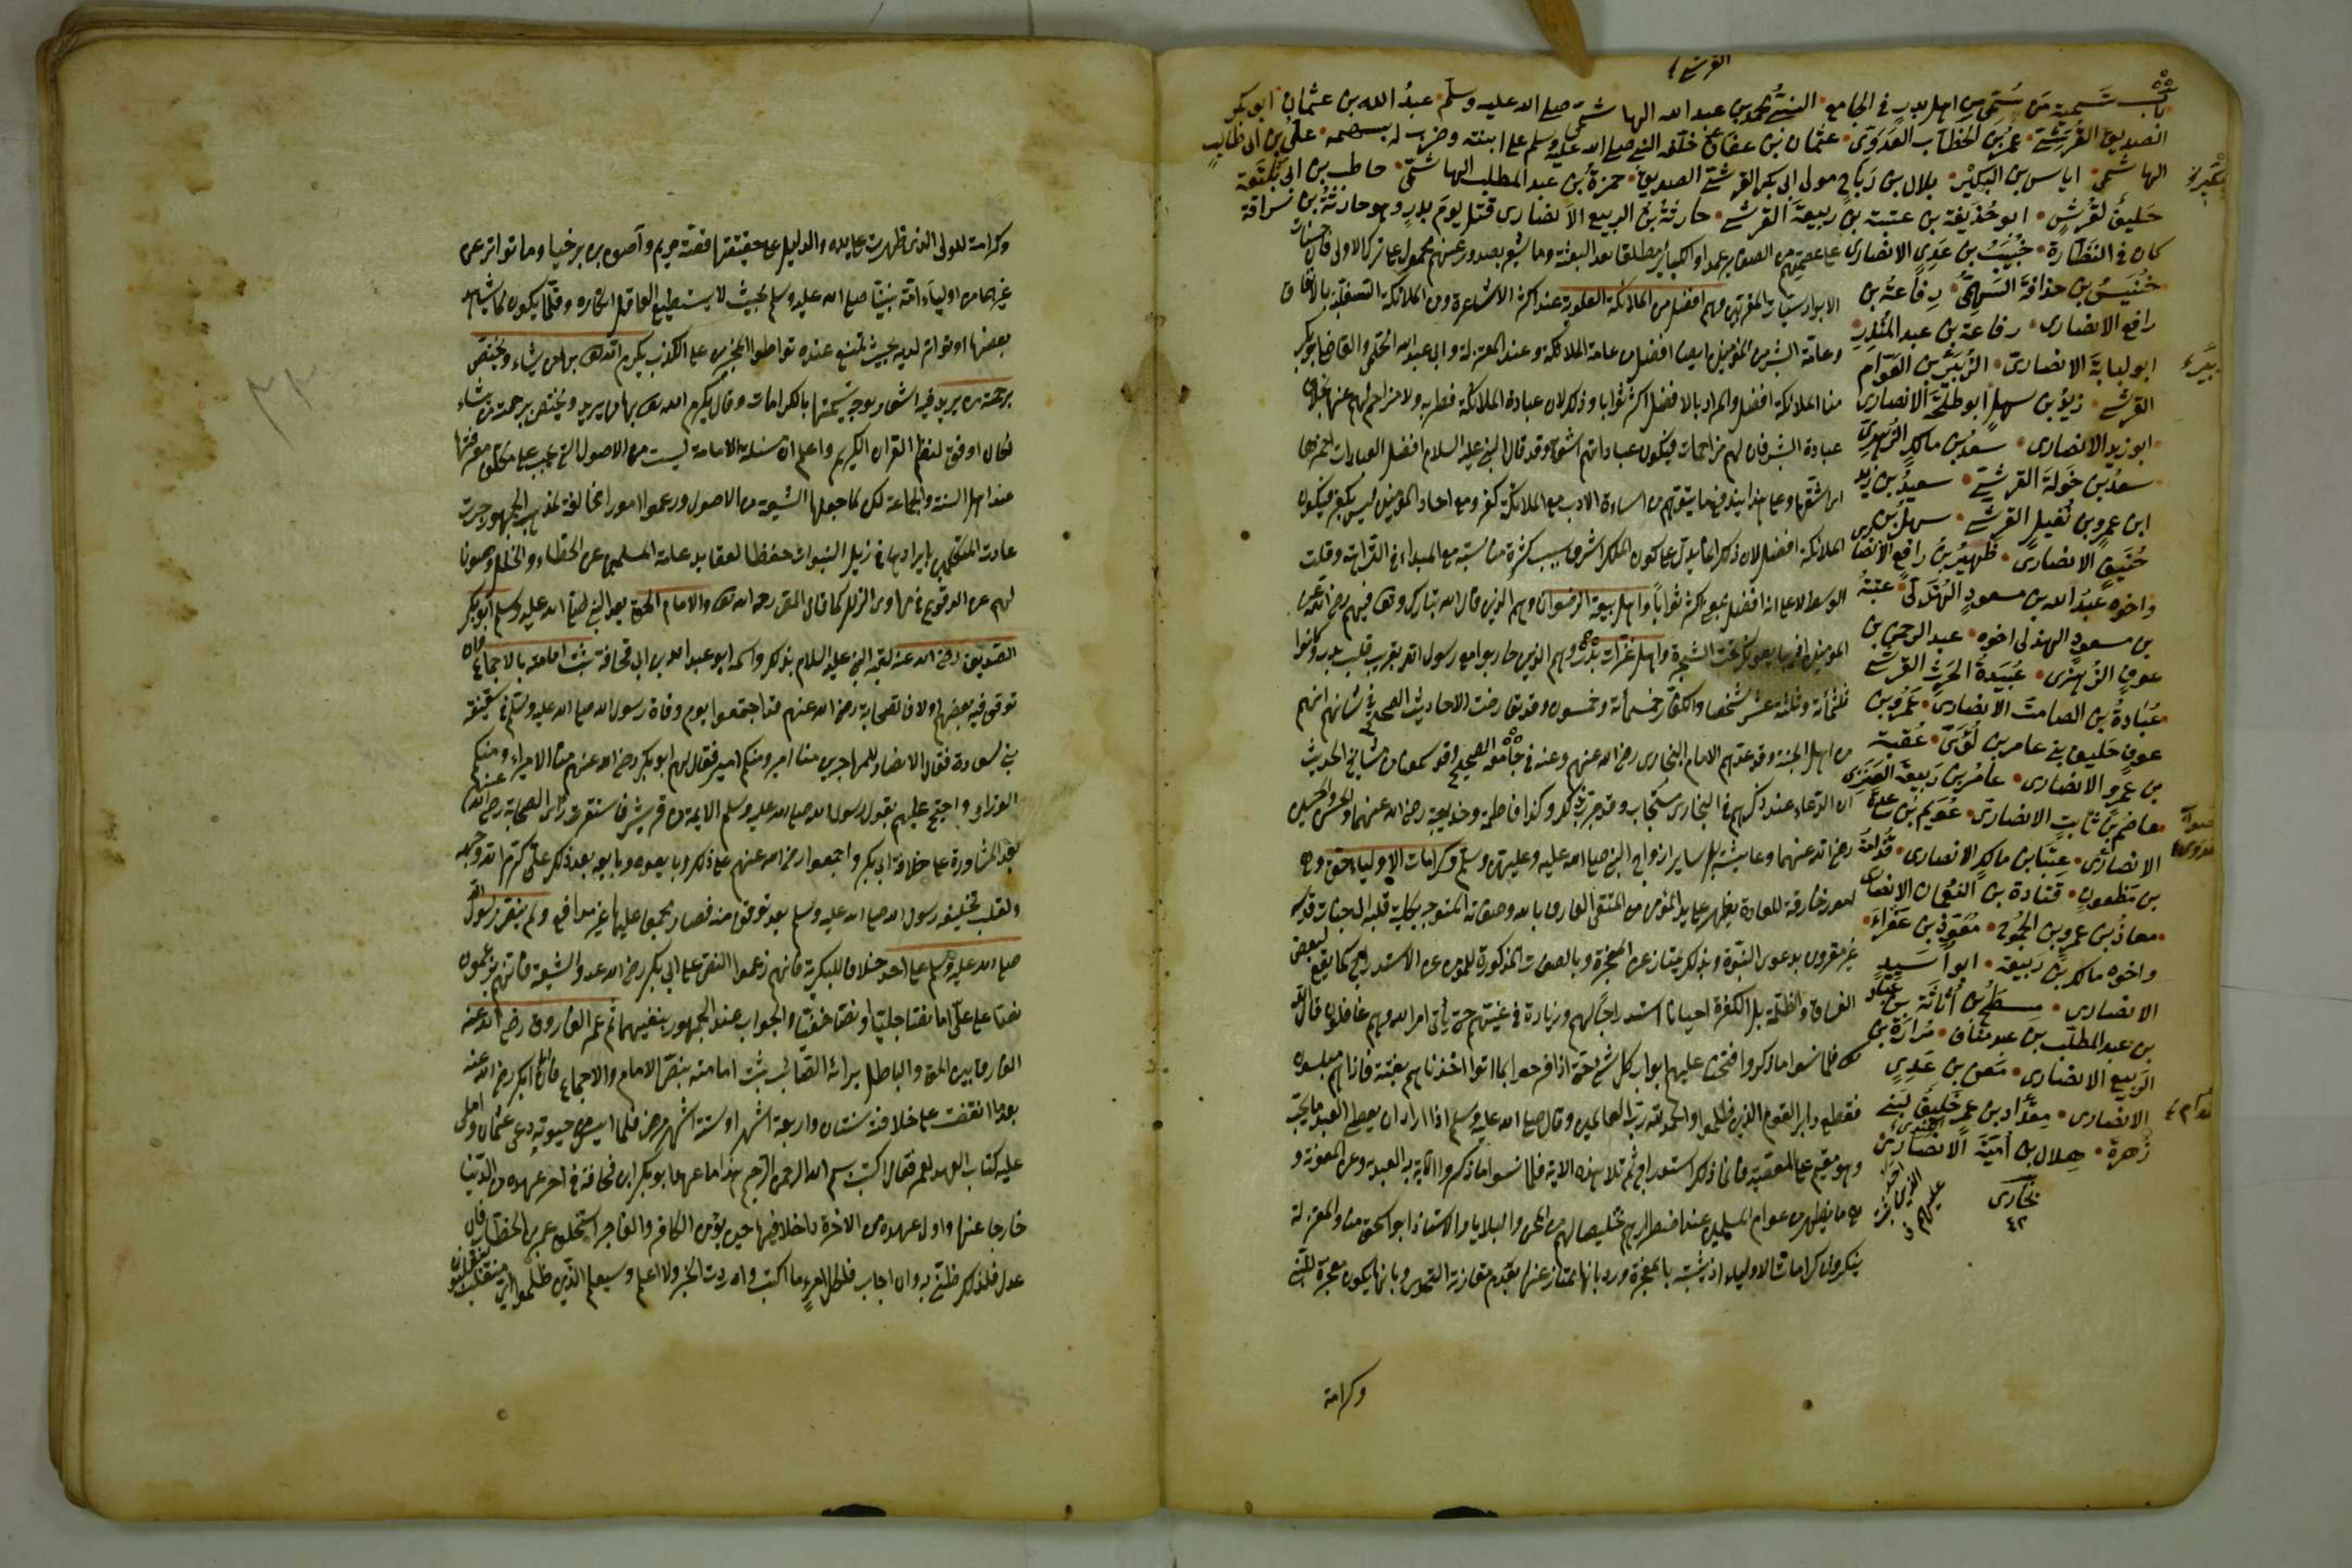 القرشى
باب تسمية من سمى من اهل بدر فى الجامع النبى محمد بن عبد الله الهاشمى صلى الله عليه وسلم عبد الله بن عثمان ابو بكر
الصديق القرشى عمر بن الخطاب العدوى عثمان بن عفان خلفه النبى صلى الله عليه وسلم على ابنته وضرب له بسهمه على بن ابى طالب
الهاشمى اياس بن البكير بلال بن رباح مولى ابى بكر القرشى الصديق حمزة بن عبد المطلب الهاشمى حاطب بن ابى بلتعة
حليف لقريش ابو حذيفة بن عتبة بن ربيعة القرشى حارثة بن الربيع الانصارى قتل يوم بدر وهو حارثة بن سراقة
كان فى النظارة خبيب بن عدى الانصارى
خنيس بن حذافة السهمى رفاعة بن
رافع الانصارى رفاعة بن عبد المنذر
ابو لبابة الانصارى الزبير بن العوام
القرشى زيد بن سهل ابو طلحة الانصارى
ابو زيد الانصارى سعد بن مالك الزهرى
سعد بن خولة القرشى سعيد بن زيد
ابن عمرو بن نفيل القرشى سهل بن
حنيف الانصارى ظهير بن رافع الانصارى
واخوه عبد الله بن مسعود الهذلى عتبة
بن مسعود الهذلى اخوه عبد الرحمن بن
عوف الزهرى عبيدة بن الحرث القرشى
عبادة بن الصامت الانصارى عمرو بن
عوف حليف بنى عامر بن لؤى عقبة
بن عمرو الانصارى عامر بن ربيعة العنزى
عاصم بن ثابت الانصارى عويم بن ساعدة
الانصارى عتبان بن مالك الانصارى قدامة
بن مظعون قتادة بن النعمان الانصارى
معاذ بن عمرو بن الجموح معوذ بن عفراء
واخوه مالك بن ربيعة ابو اسيد
الانصارى مسطح بن اثاثة بن عباد
بن عبد المطلب بن عبد مناف مرارة بن
الربيع الانصارى معن بن عدى
الانصارى مقداد بن عمرو حليف بنى
زهرة هلال بن امية الانصارى
بخارى
على عصمتهم من الصغاير عمدا والكباير مطلقا بعد البعثة وما يشعر بصدور عنهم محمول على ترك الاولى فان حسنات
الابرار سيئات المقربين وهم افضل من الملائكة العلوية عند اكثر الاشاعرة ومن الملائكة السفلية بالاتفاق
وعامة البشر من المؤمنين ايضا افضل من عامة الملائكة وعند المعتزلة وابى عبد الله الحليمى والقاضى ابو بكر
منا الملائكة افضل والمراد بالافضل اكثر ثوابا وذلك لان عبادة الملائكة فطرية ولا مزاحم لهم عنها بخلاف
عبادة البشر فان لهم مزاحمات فيكون عباداتهم اشق وقد قال النبى عليه السلام افضل العبادات احمزها
الملائكة افضل لان ذلك انما يدل على كون الملك اشرف بسبب كثرة مناسبته مع المبداء فى
واهل بيعة الرضوان وهم الذين قال الله تبارك وتعالى فيهم رضى الله عن
المؤمنين اذ يبايعونك تحت الشجرة واهل غزات بدر وهم الذين حاربوا مع رسول الله بقرب قليب بدر وكانوا
ثلثمائة وثلثة عشر شخصا والكفار خمسمائة وخمسون وقد تعارضت الاحاديث الصحيحة فى شانهم انهم
من اهل الجنة وقد عدهم الامام البخارى رضى الله عنهم وعنه فى جامعه الصحيح وقد سمعنا من مشايخ الحديث
ان الدعاء عند ذكرهم فى البخارى مستجاب وقد جرب ذلك وكذا فاطمة وخديجة رضى الله عنهما والحسن والحسين
رضى الله عنهما وعايشة بل ساير ازواج النبى صلى الله عليه وعليهن وسلم وكرامات الاولياء حق وهى
امور خارقة للعادة يظهر على يد المؤمن المتقى العارف بالله وصفاته المتوجه بكلية قلبه الى جناب قدسه
غير مقرون بدعوى النبوة وبذلك يمتاز عن المعجزة وبالصفات المذكورة للمؤمن عن الاستدراج كما يقع لبعض
الفساق والظلمة بل الكفرة احيانا استدراجا لهم وزيادة فى غيهم حتى يأتى امر الله وهم غافلون قال الله
تعالى فلما نسوا ما ذكروا به فتحنا عليهم ابواب كل شئ حتى اذا فرحوا بما اوتوا اخذناهم بغتة فاذا هم مبلسون
فقطع دابر القوم الذين ظلموا والحمد لله رب العالمين وقال صلى الله عليه وسلم اذا اراد ان يعطى العبد ما يحب
وهو مقيم على معصية فانما ذلك استدراج ثم تلا هذه الاية فلما نسوا ما ذكروا الاية به العبد وعن المعونة و
هى ما يظهر من عوام المسلمين عند اضطرارهم تخليصا لهم من المحن والبلايا والاستاذ ابو اسحق منا والمعتزلة
ينكرون كرامات الاولياء اذ يشتبه بالمعجزة ورد بانها تمتاز عنها بعدم مقارنة التحدى وبانها يكون معجزة للنبى
وكرامة
وكرامة للولى الذى ظهرت على يده والدليل على حقيقتها قصة مريم وآصف بن برخيا وما تواتر عن
غيرهما من اولياء امة نبينا صلى الله عليه وسلم بحيث لا يستطيع العاقل انكاره وقلما يكون لم يشاهد
بعضها او تواتر لديه بحيث يمتنع عنده تواطؤ المخبرين على الكذب يكرم الله تعالى بها من يشاء ويختص
برحمته من يريد فيه اشعار بوجه تسميتها بالكرامات وقال يكرم الله تعالى بها من يريد ويختص برحمته من يشاء
لكان اوفق لنظم القرآن الكريم واعلم ان مسئلة الامامة ليست من الاصول التى يجب على مكلف معرفتها
عند اهل السنة والجماعة لكن لما جعلها الشيعة من الاصول وزعموا امورا مخالفة لمذهب الجمهور جرت
عادت المتكلمين بايرادها فى ذيل النبوات حفظا لعقايد عامة المسلمين عن الخطاء والخلل وصونا
لهم عن الوقوع فى مهاوى الزلل كما قال المص رحمه الله تعالى والامام الحق بعد النبى صلى الله عليه وسلم ابو بكر
الصديق رضى الله عنه لقبه النبى عليه السلام بذلك واسمه ابو عبد الله بن ابى قحافة ثبتت امامته بالاجماع وان
توقف فيه بعضهم اولا فان الصحابة رضى الله عنهم قد اجتمعوا يوم وفاة رسول الله صلى الله عليه وسلم فى سقيفة
بنى سعادة فقال الانصار للمهاجرين منا امير ومنكم امير فقال لهم ابو بكر رضى الله عنهم منا الامراء ومنكم
الوزراء واحتج عليهم بقول رسول الله صلى الله عليه وسلم الايمة من قريش فاستقرت رأى الصحابة رضى الله عنهم
بعد المشاورة على خلافة ابى بكر واجمعوا رضى الله عنهم على ذلك وبايعوه وبايعه بعد ذلك على كرم الله وجهه
ولقب بخليفة رسول الله صلى الله عليه وسلم بعد توقف منه فصار مجمعا عليها غير مدافع ولم ينص رسول الله
صلى الله عليه وسلم على احد خلافا للبكرية فانهم زعموا النص على ابى بكر رضى الله عنه والشيعة فانهم يزعمون
نصا على على اما نصا جليا او نصا خفيا والجواب عند الجمهور بنفيهما ثم عمر الفاروق رضى الله عنه
الفارق بين الحق والباطل برأيه الصائب ثبتت امامته بنص الامام والاجماع فان ابا بكر رضى الله عنه
بعد ما انقضت على خلافته سنتان واربعة اشهر او ستة اشهر مرض فلما ايس من حيوته دعى عثمان واملى
عليه كتاب العهد لعمر فقال اكتب بسم الله الرحمن الرحيم هذا ما عهد ابو بكر ابن قحافة فى اخر عهده من الدنيا
خارجا عنها واول عهده من الاخرة داخلا فيها حين يؤمن الكافر والفاجر استخلف عمر بن الخطاب فان
عدل فذلك ظنى به وان اجاب فلكل امرء ما اكتسب واردت الخير ولا اعلم وسيعلم الذين ظلموا اى منقلب ينقلبون